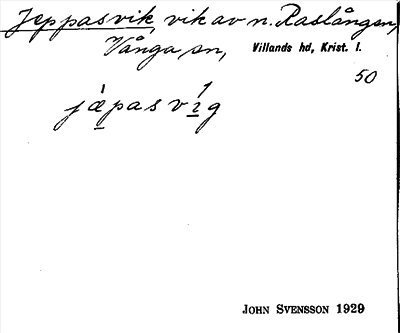 Jeppasvik, vik av n. Raslången,
Vånga sn, Villands hd, Krist. l.
50
jæ̀pasvı̲́g
JOHN SVENSSON 1929